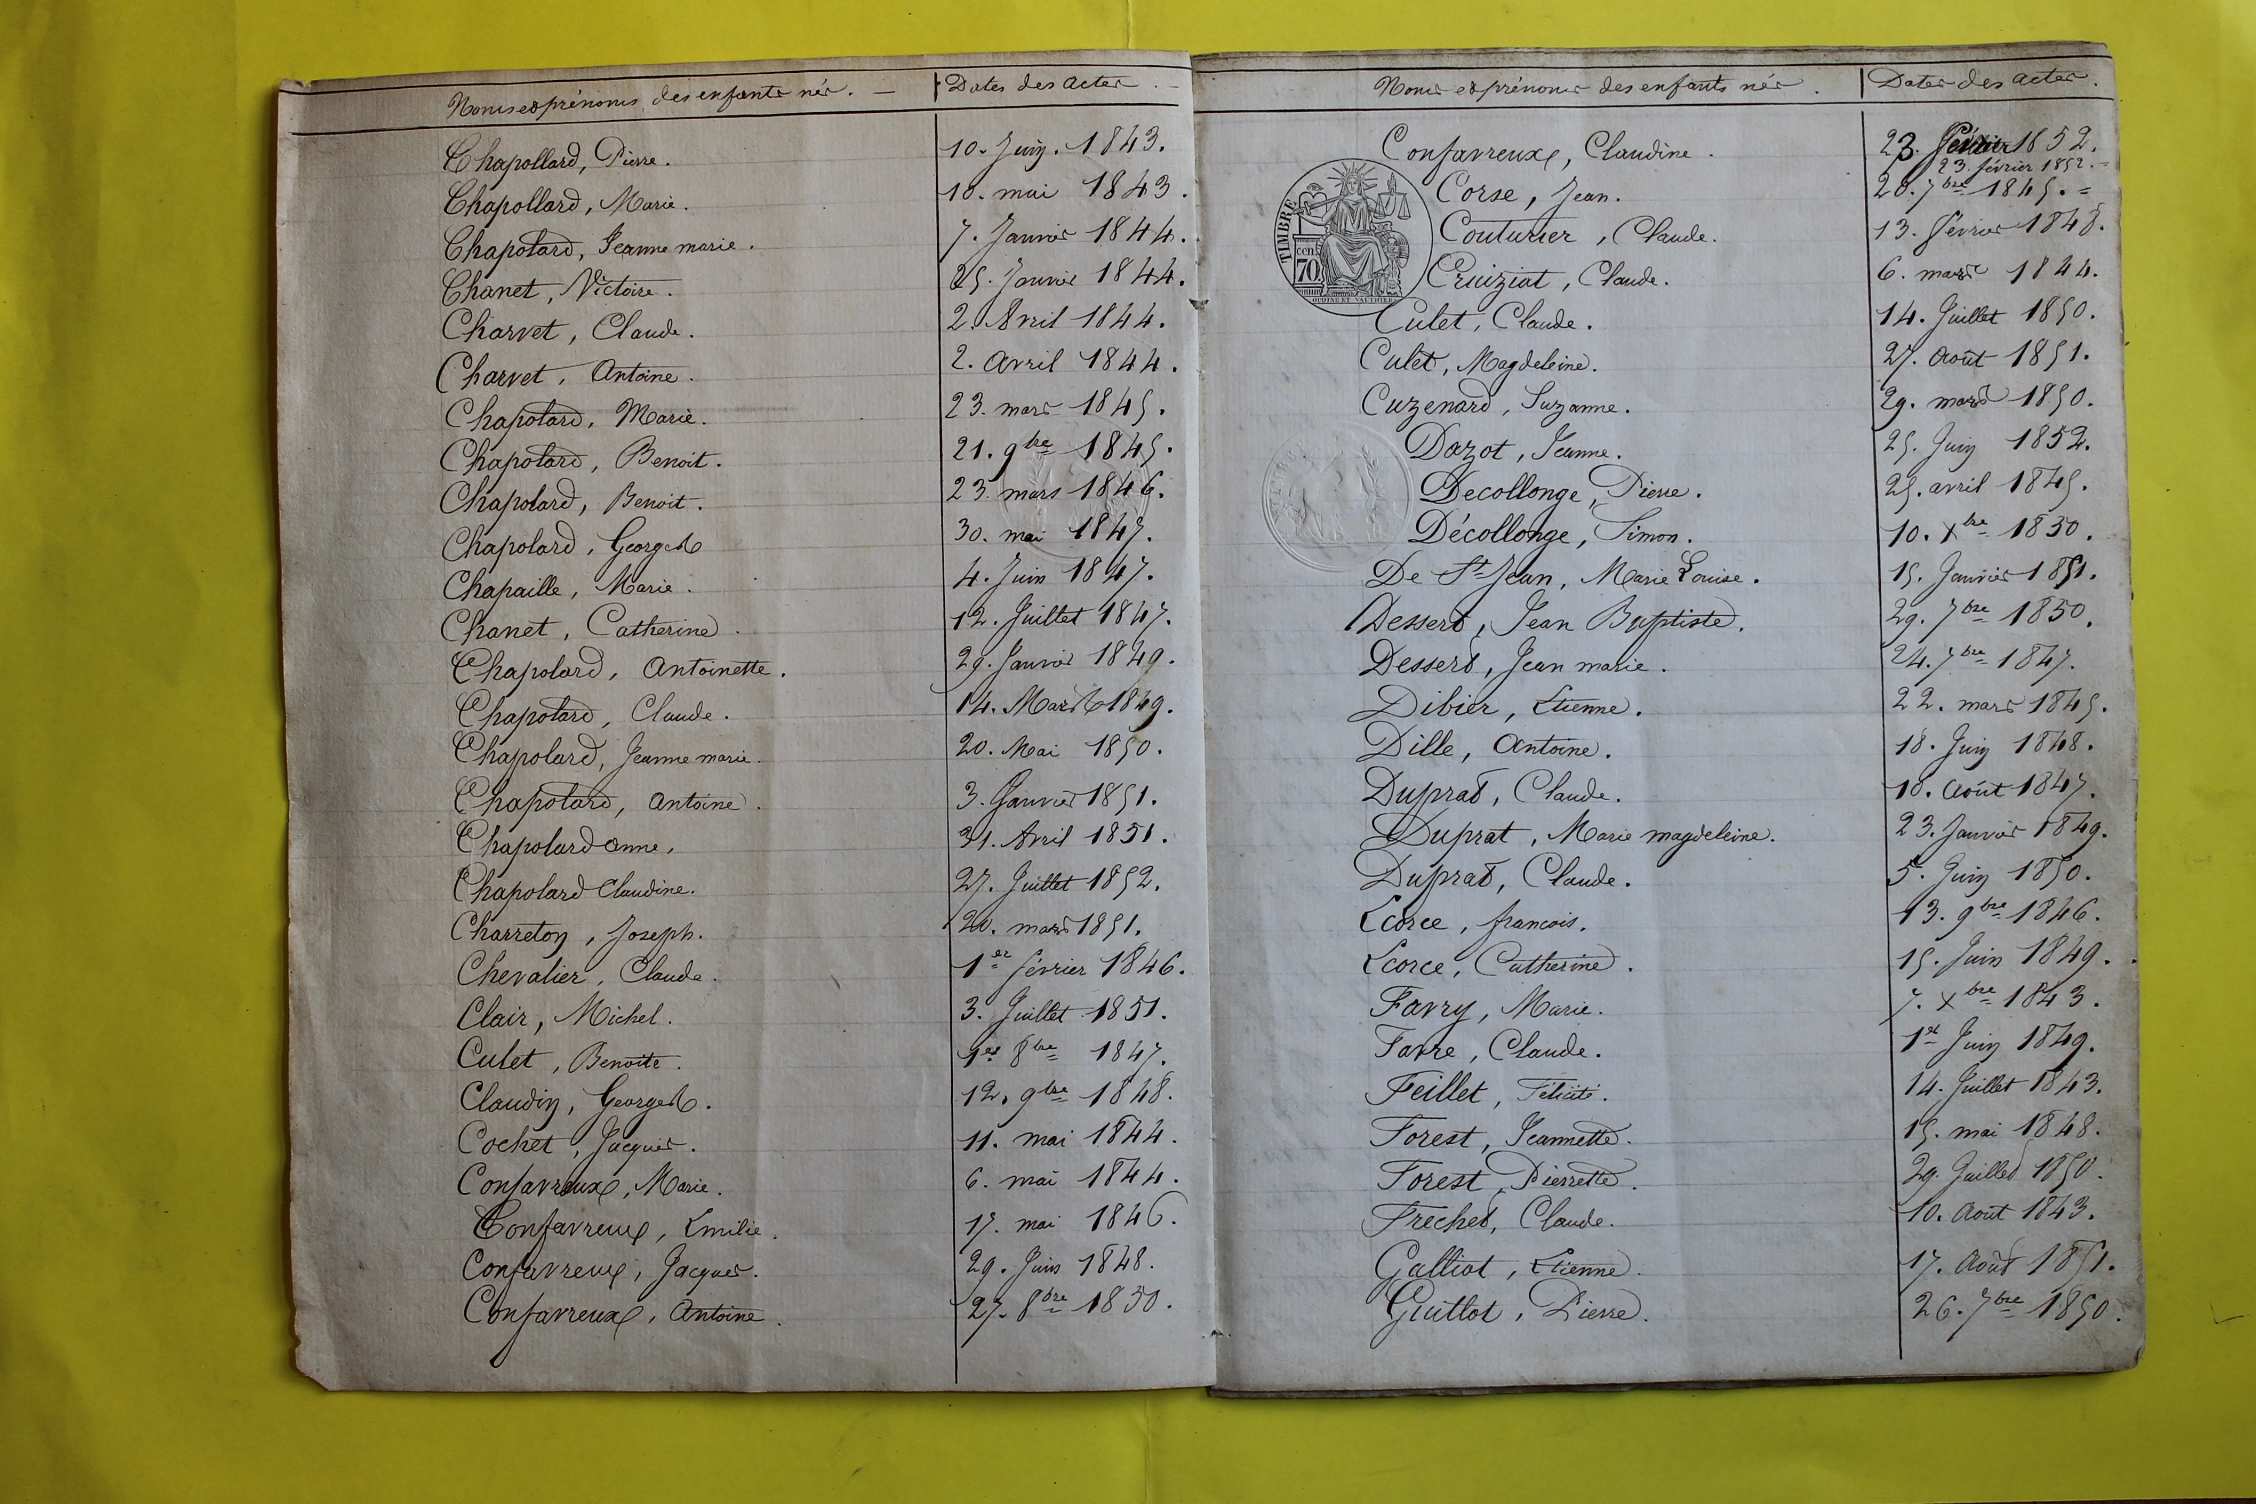 Noms et prénoms des enfants nés. — Dates des actes. —
Chapollard, Pierre. 10. Juin. 1843.
Chapollard, Marie. 10. mai 1843.
Chapolard, Jeanne marie. 7. Janvier 1844.
Chanet, Victoire. 25. Janvier 1844.
Charvet, Claude. 2. Avril 1844.
Charvet, Antoine. 2. Avril 1844.
Chapolard, Marie. 23. mars 1845.
Chapolard, Benoit. 21. 9bre 1845.
Chapolard, Benoit. 23. mars 1846.
Chapolard, Georges 30. mai 1847.
Chapaille, Marie. 4. Juin 1847.
Chanet, Catherine. 12. Juillet 1847.
Chapolard, Antoinette. 29. Janvier 1849.
Chapolard, Claude. 14. Mars 1849.
Chapolard, Jeanne marie. 20. Mai 1850.
Chapolard, Antoine. 3. Janvier 1851.
Chapolard anne. 21. Avril 1851.
Chapolard Claudine. 27. Juillet 1852.
Charreton, Joseph. 20. mars 1851.
Chevalier, Claude. 1er février 1846.
Clair, Michel. 3. Juillet 1851.
Culet, Benoite. 1er 8bre 1847.
Claudin, Georges. 12. 9bre 1848.
Cochet, Jacques. 11. mai 1844.
Confavreux, Marie. 6. mai 1844.
Confavreux, Emilie. 17. mai 1846.
Confavreux, Jacques. 29. Juin 1848.
Confavreux, Antoine. 27. 8bre 1850.
Noms et prénoms des enfants nés. Dates des actes.
Confavreux, Claudine. 23. février 1852.
23. février 1852. =
Corse, Jean. 20. 7bre 1845. =
TIMBRE
cen
70
OUDINÉ ET VAUTHIER
Couturier, Claude. 13. février 1848.
Cruiziat, Claude. 6. mars 1844.
Culet, Claude. 14. Juillet 1850.
Culet, Magdeleine. 27. Août 1851.
Cuzenard, Suzanne. 29. mars 1850.
Dazot, Jeanne. 25. Juin 1852.
Decollonge, Pierre. 25. avril 1845.
Décollonge, Simon. 10. Xbre 1850.
De St Jean, Marie Louise. 15. Janvier 1851.
Dessert, Jean Baptiste. 29. 7bre 1850.
Dessert, Jean marie. 24. 7bre 1847.
Dibier, Etienne. 22. mars 1845.
Dille, Antoine. 18. Juin 1848.
Duprat, Claude. 10. Août 1847.
Duprat, Marie magdeleine. 23. Janvier 1849.
Duprat, Claude. 5. Juin 1850.
Ecorce, francois. 13. 9bre 1846.
Ecorce, Catherine. 15. Juin 1849.
Favry, Marie. 7. Xbre 1843.
Favre, Claude. 1er Juin 1849.
Feillet, Félicité. 14. Juillet 1843.
Forest, Jeannette. 15. mai 1848.
Forest, Pierrette. 29. Juillet 1850.
Frechet, Claude. 10. Août 1843.
Galliot, Etienne. 17. Août 1851.
Guillot, Pierre. 26. 7bre 1850.